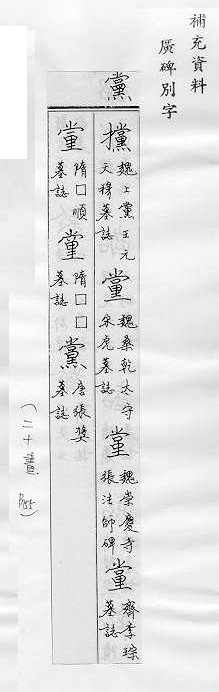 補充資料
廣碑別字
黨
攩 魏上黨王元
天穆墓誌
魏桑乾太守
宋虎墓誌
魏崇慶寺
張法師碑
齊李琮
墓誌
隋□□順
墓誌
隋□□□
墓誌
黨 唐張獎
墓誌
(二十畫)